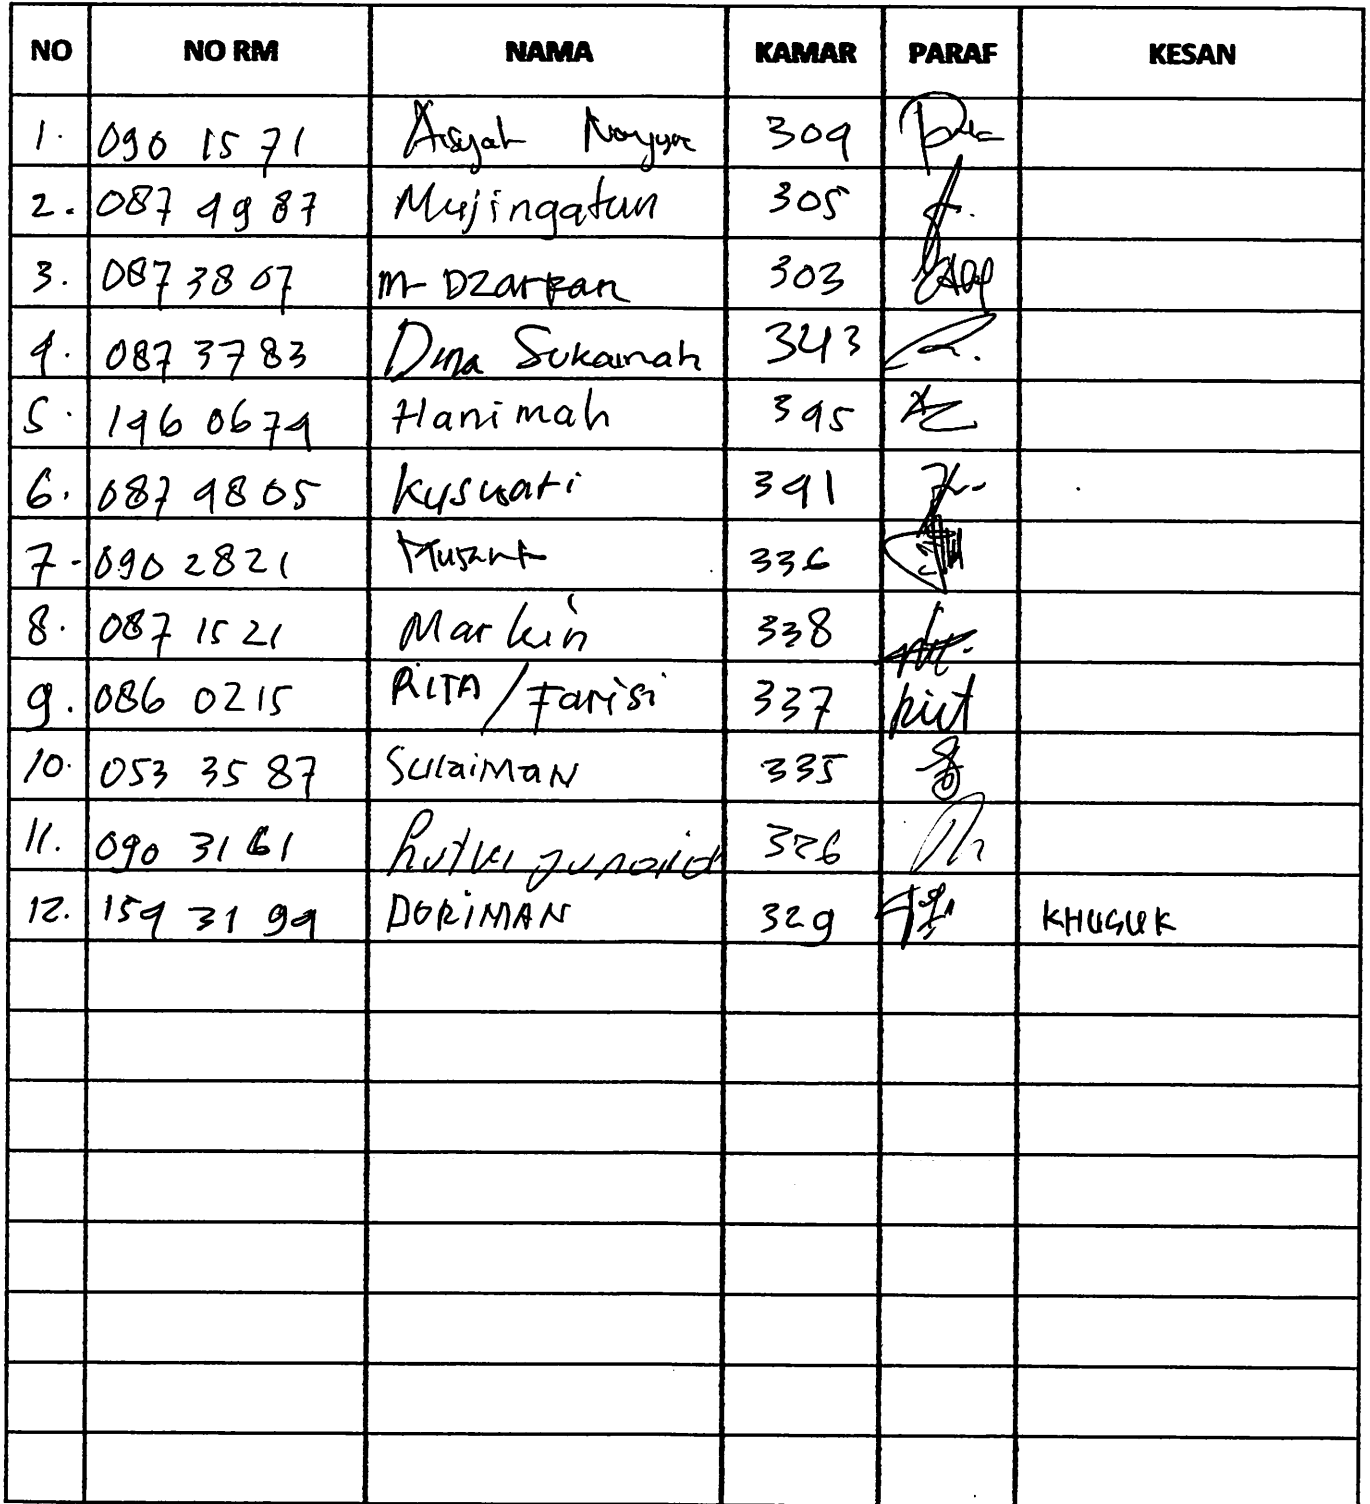 NO NO RM NAMA KAMAR PARAF KESAN
1. 090 15 71 Aisyah 304
2. 087 49 87 Mujingatun 305
3. 087 38 07 M Dzarfan 303
4. 087 37 83 Dina Sukainah 343
5. 146 06 74 Hanimah 345
6. 087 48 05 Kusuari 341
7. 090 28 21 336
8. 087 15 21 Markin 338
9. 086 02 15 RITA / Farisi 337
10. 053 35 87 SULAIMAN 335
11. 090 31 61 326
12. 154 31 94 DORIMAN 329 KHUSUK